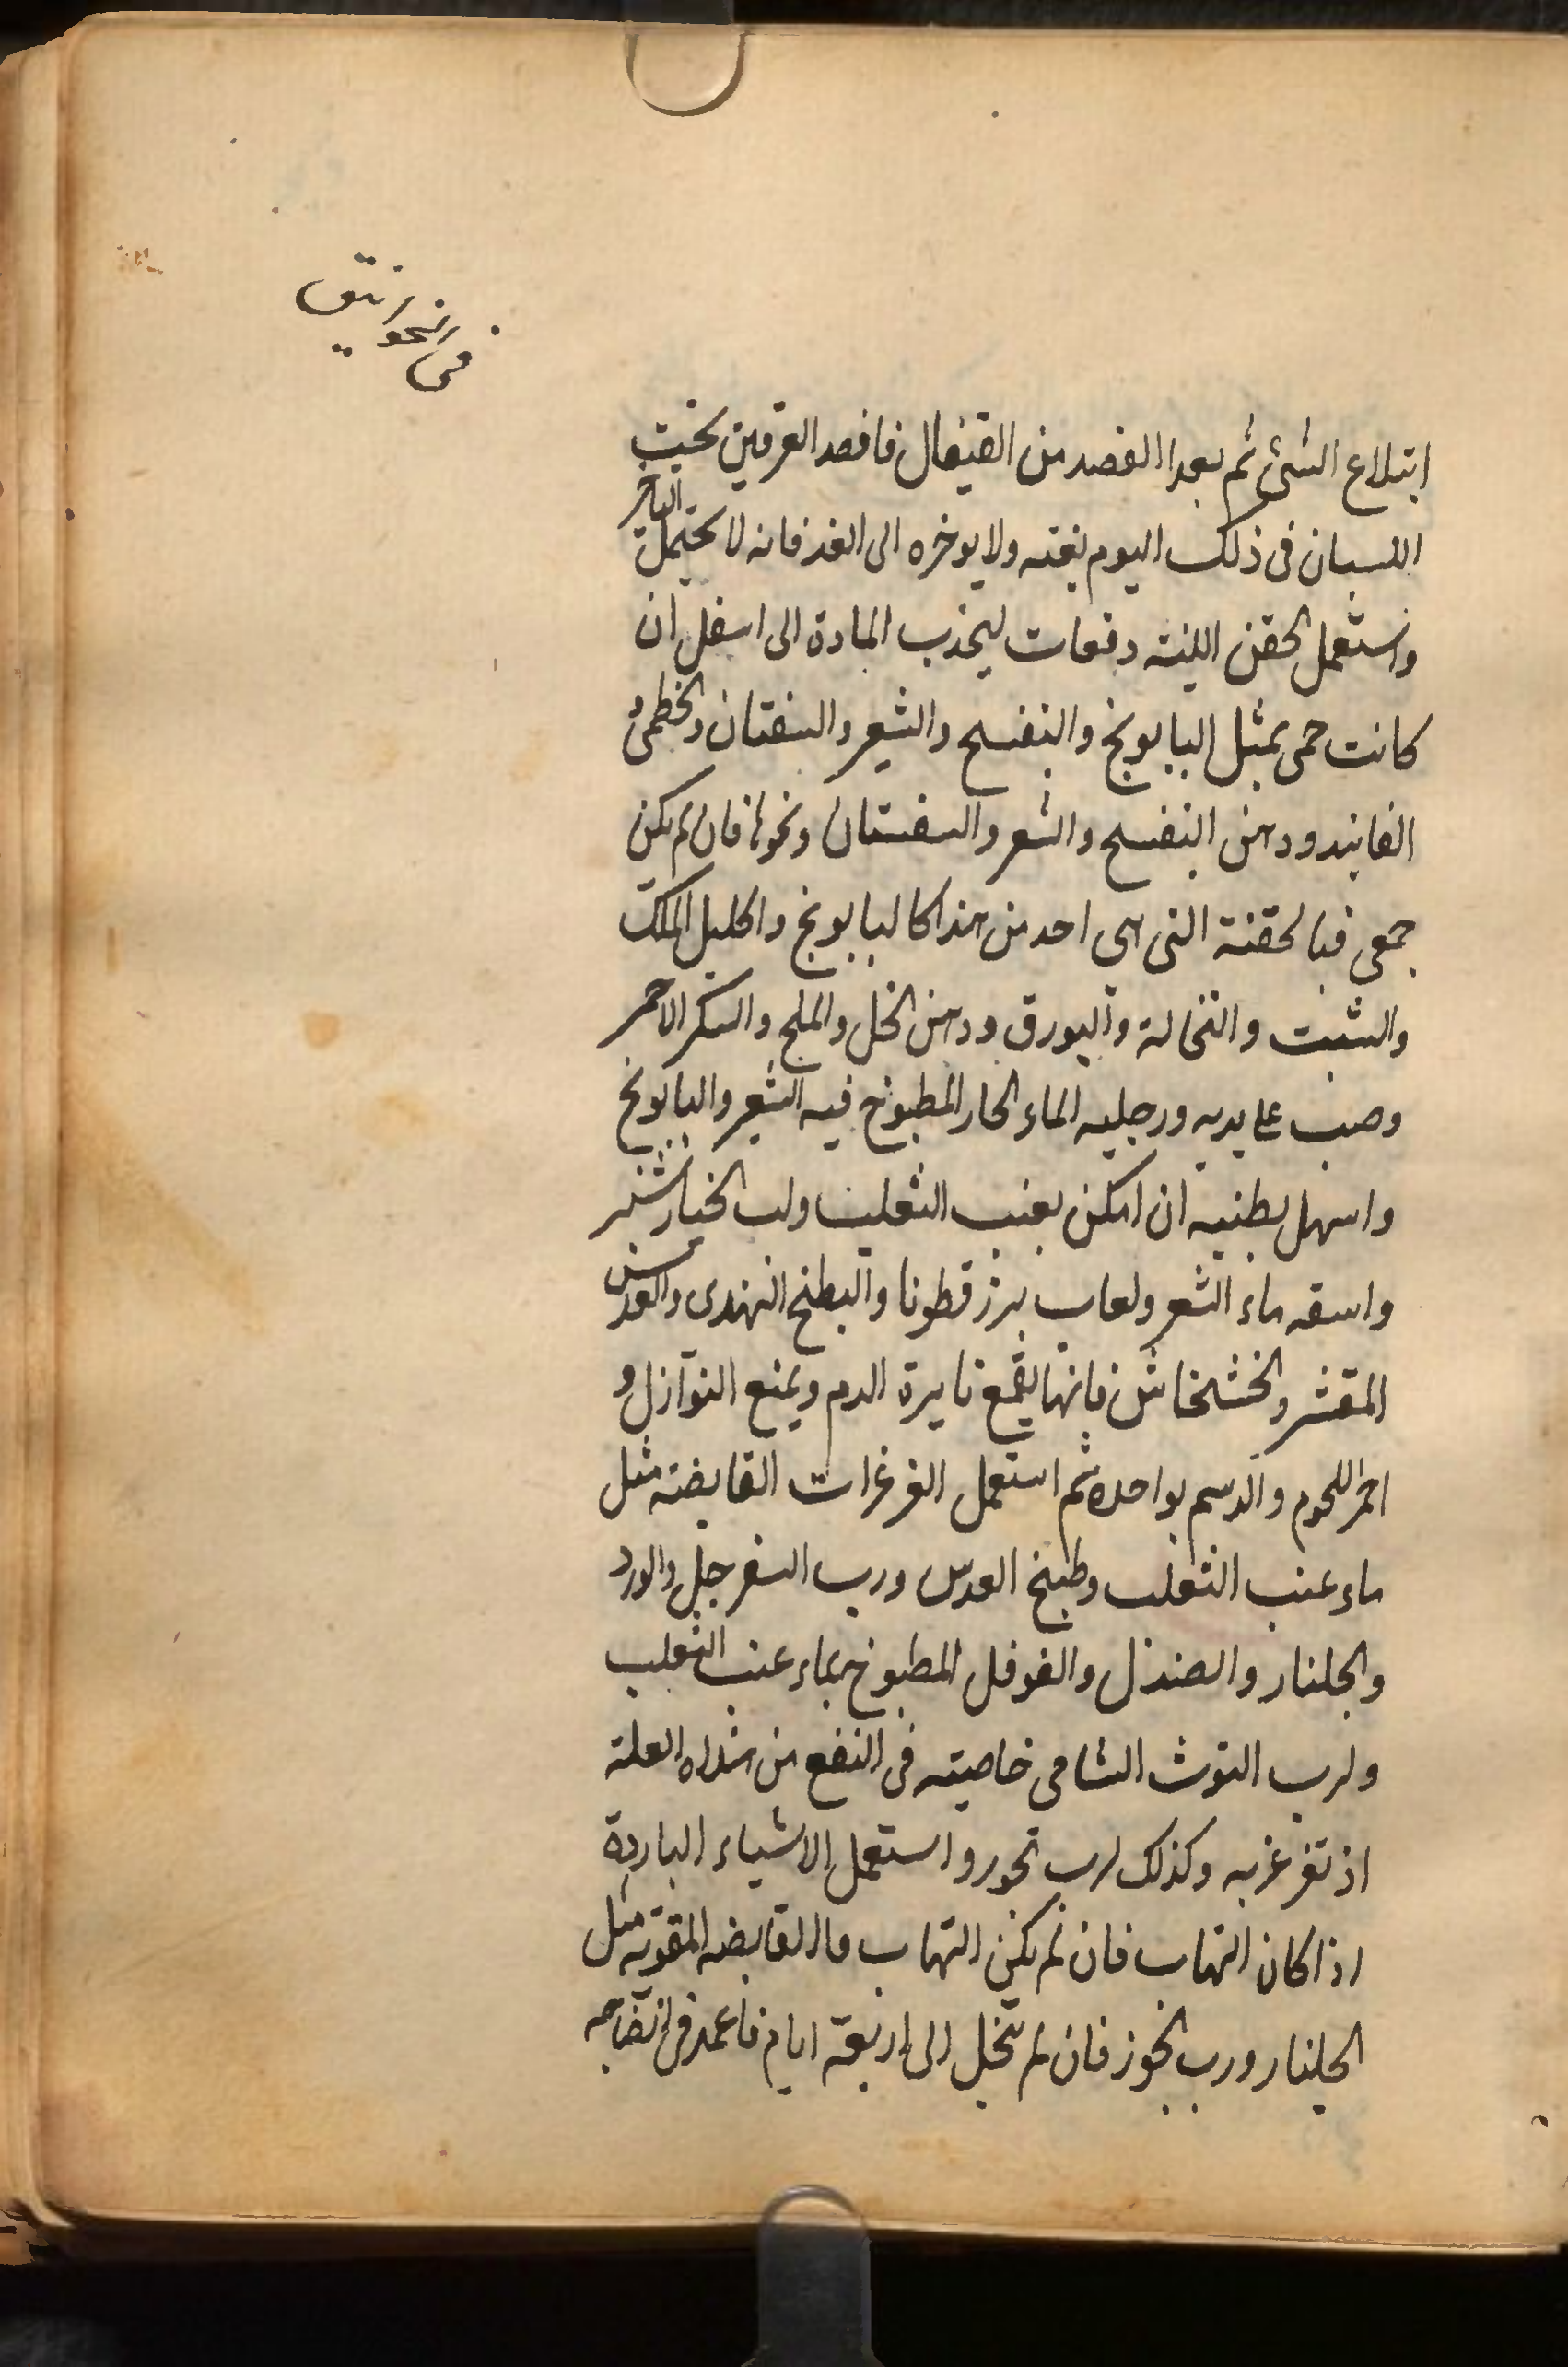 في الخوانيق
ابتلاع الشئ ثم بعدا الفصد من القيفال فافصد العرقين تحت
اللسان في ذلك اليوم بغته ولا يوخره الى الغد فانه لا يحتمل التاخر
واستعمل الحقن اللينه دفعات ليجذب المادة الى اسفل ان
كانت حمى بمثل البابونج والبنفسج والشعير والسفتان والخطمى و
الفانيد ودهن البنفسج والشعر والسفستان ونحوها فان لم يكن
حمى فبالحقنة التى هى احد من هذا كالبابونج واكليل الملك
والشبت والنخالة والبورق ودهن الخل والملح والسكر الاحمر
وصب على يديه ورجليه الماء الحار المطبوخ فيه الشعير والبابونج
واسهل بطنيه ان امكن بعنب الثعلب ولب الخيارشنبر
واسقه ماء الشعر ولعاب بزر قطونا والبطيخ الهندى والعدس
المقشر والخشخاش فانها يقمع نايرة الدم ويمنع النوازل و
احمر اللحوم والدسم بواحده ثم استعمل الغرغرات القابضة مثل
ماء عنب الثعلب وطبخ العدس ورب السفرجل والورد
والجلنار والصندل والفوفل المطبوخ بماء عنب الثعلب
ولرب التوث الشامى خاصيته فى النفع من هذه العلة
اذ تغرغر به وكذلك لرب تجور واستعمل الاشياء الباردة
اذا كان التهاب فان لم يكن التهاب فالقابضه المقويه مثل
الجلنار ورب الجوز فان لم تحل الى اربعة ايام فاعمد فى انضاجه